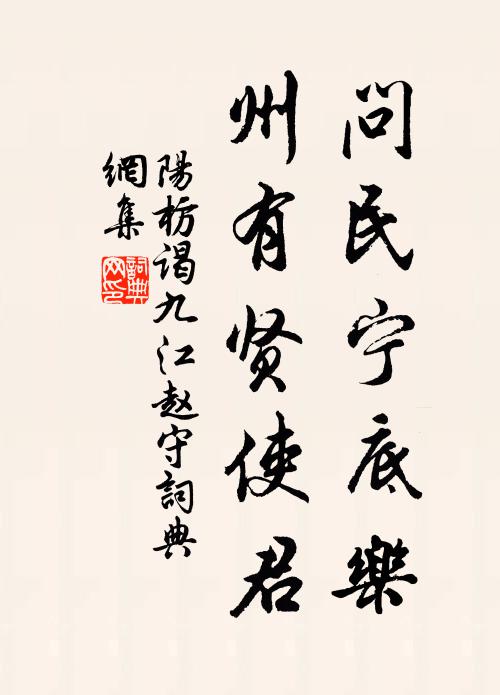 问民宁底樂
州有贤使君
陽枋谒九江赵守詞典
網集
詞典網印